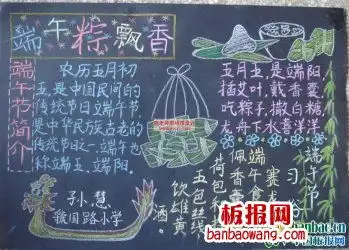 端午粽飘香
端午节简介
农历五月初
五,是中国民间的
传统节日端午节,
是中华民族古老的
传统节日之一。端午也
称端五,端阳。
五月五,是端阳
插艾叶,戴香囊
吃粽子,撒白糖
龙舟下水喜洋洋
端午节
习俗
赛龙舟
端午食粽
佩香囊
荷包和
五色丝线
饮雄黄
酒。
孙慧
救国路小学
板报网
www.banbaowang.com